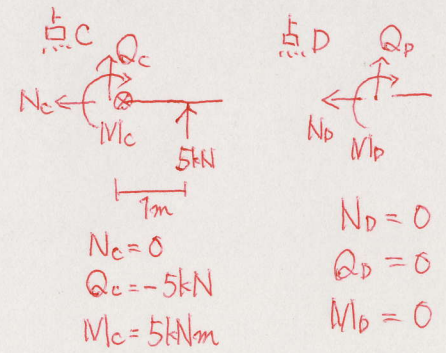 点C
Qc
Nc
Mc
5kN
1m
Nc=0
Qc=-5kN
Mc=5kNm
点D
QD
ND
MD
ND=0
QD=0
MD=0